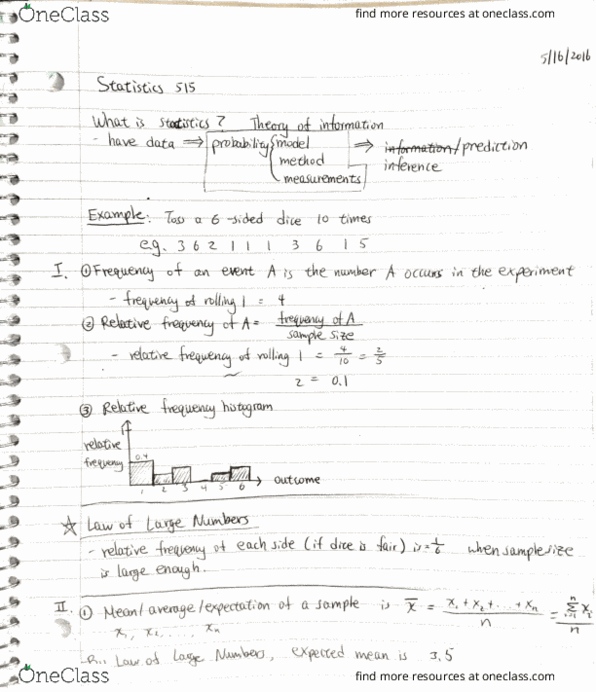 OneClass find more resources at oneclass.com
5/16/2016
Statistics 515
What is statistics? Theory of information
- have data ⇒ probability { model ⇒ information/prediction
method inference
measurements
Example: Toss a 6-sided dice 10 times
e.g. 3 6 2 1 1 1 3 6 1 5
I. ① Frequency of an event A is the number A occurs in the experiment
- frequency of rolling 1 = 4
② Relative frequency of A = frequency of A / sample size
- relative frequency of rolling 1 = 4/10 = 2/5
2 = 0.1
③ Relative frequency histogram
relative
frequency 0.4
1 2 3 4 5 6 outcome
☆ Law of Large Numbers
- relative frequency of each side (if dice is fair) is = 1/6 when sample size
is large enough.
II. ① Mean/average/expectation of a sample is x̄ = (x₁ + x₂ + ... + xₙ)/n = Σⁿᵢ₌₁ xᵢ/n
x₁, x₂, ..., xₙ
Law of Large Numbers, expected mean is 3.5
OneClass find more resources at oneclass.com